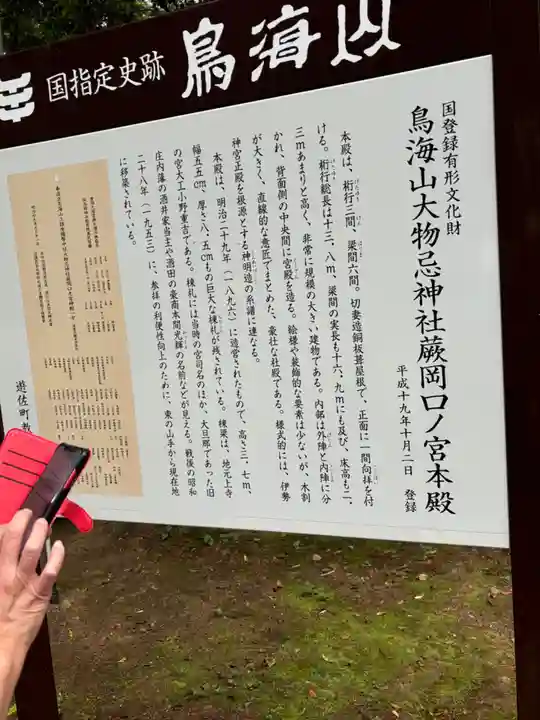 国指定史跡 鳥海山
国登録有形文化財
鳥海山大物忌神社蕨岡口ノ宮本殿
平成十九年十月二日 登録
本殿は、桁行三間、梁間六間。切妻造銅板葺屋根で、正面に一間向拝を付
ける。桁行総長は十三.八m、梁間の実長も十六.九mにも及び、床高も二.
三mあまりと高く、非常に規模の大きい建物である。内部は外陣と内陣に分
かれ、背面側の中央間に宮殿を造る。絵様や装飾的な要素は少ないが、木割
が大きく、直線的な意匠でまとめた、豪壮な社殿である。様式的には、伊勢
神宮正殿を根源とする神明造の系譜に連なる。
本殿は、明治二十九年(一八九六)に造営されたもので、高さ三.七m、
幅五五cm、厚さ八.五cmもの巨大な棟札が残されている。棟梁は、地元上寺
の宮大工小野重吉である。棟札には当時の宮司名のほか、大旦那であった旧
庄内藩の酒井家当主や酒田の豪商本間光輝の名前などが見える。戦後の昭和
二十八年(一九五三)に、参拝の利便性向上のために、東の山手から現在地
に移築されている。
遊佐町教